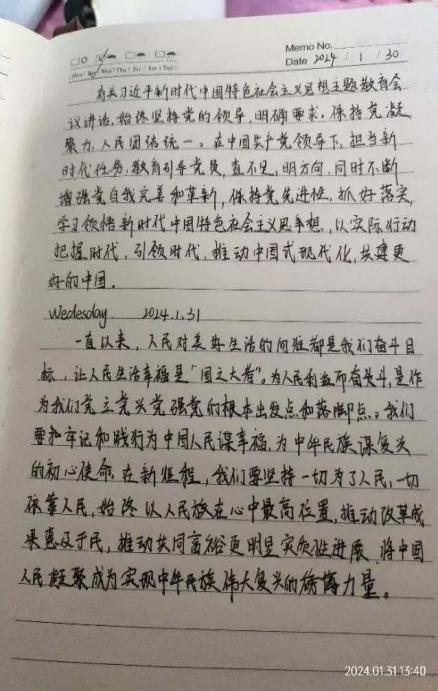 Memo No.
Mon / Tue / Wed / Thu / Fri / Sat / Sun
Date 2024 / 1 / 30
有关习近平新时代中国特色社会主义思想主题教育会
议讲话,始终坚持党的领导,明确要求。保持党凝
聚力,人民团结统一。在中国共产党领导下,担当新
时代任务,教育引导党员,查不足,明方向,同时不断
增强党自我完善和革新,保持党先进性,抓好落实,
学习领悟新时代中国特色社会主义思想,以实际行动
把握时代,引领时代,推动中国式现代化,共建更
好的中国。
Wedesday. 2024.1.31
一直以来,人民对美好生活的向往都是我们奋斗目
标,让人民生活幸福是“国之大者”。为人民利益而奋斗,是作
为我们党立党兴党强党的根本出发点和落脚点。我们
要牢记和践行为中国人民谋幸福,为中华民族谋复兴
的初心使命。在新征程,我们要坚持一切为了人民,一切
依靠人民,始终以人民放在心中最高位置,推动改革成
果惠及于民,推动共同富裕更明显实质性进展,将中国
人民凝聚成为实现中华民族伟大复兴的磅礴力量。
2024.01.31 13:40